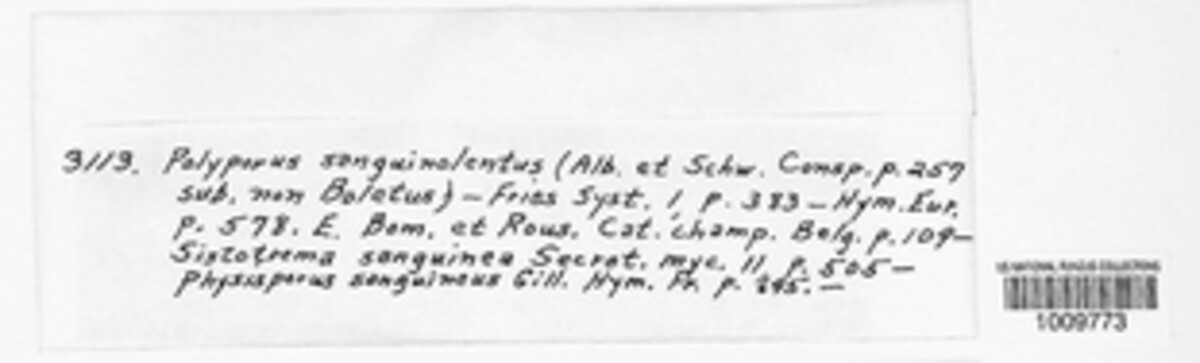 3113. Polyporus sanguinolentus (Alb. et Schw. Consp. p. 257
sub. non Boletus) — Fries Syst. 1, p. 383 — Hym. Eur.
p. 578. E. Bom. et Rous. Cat. champ. Belg. p. 109—
Sistotrema sanguinea Secret. myc. II, p. 505—
Physisporus sanguineus Gill. Hym. Fr. p.
US NATIONAL FUNGUS COLLECTIONS
1009773